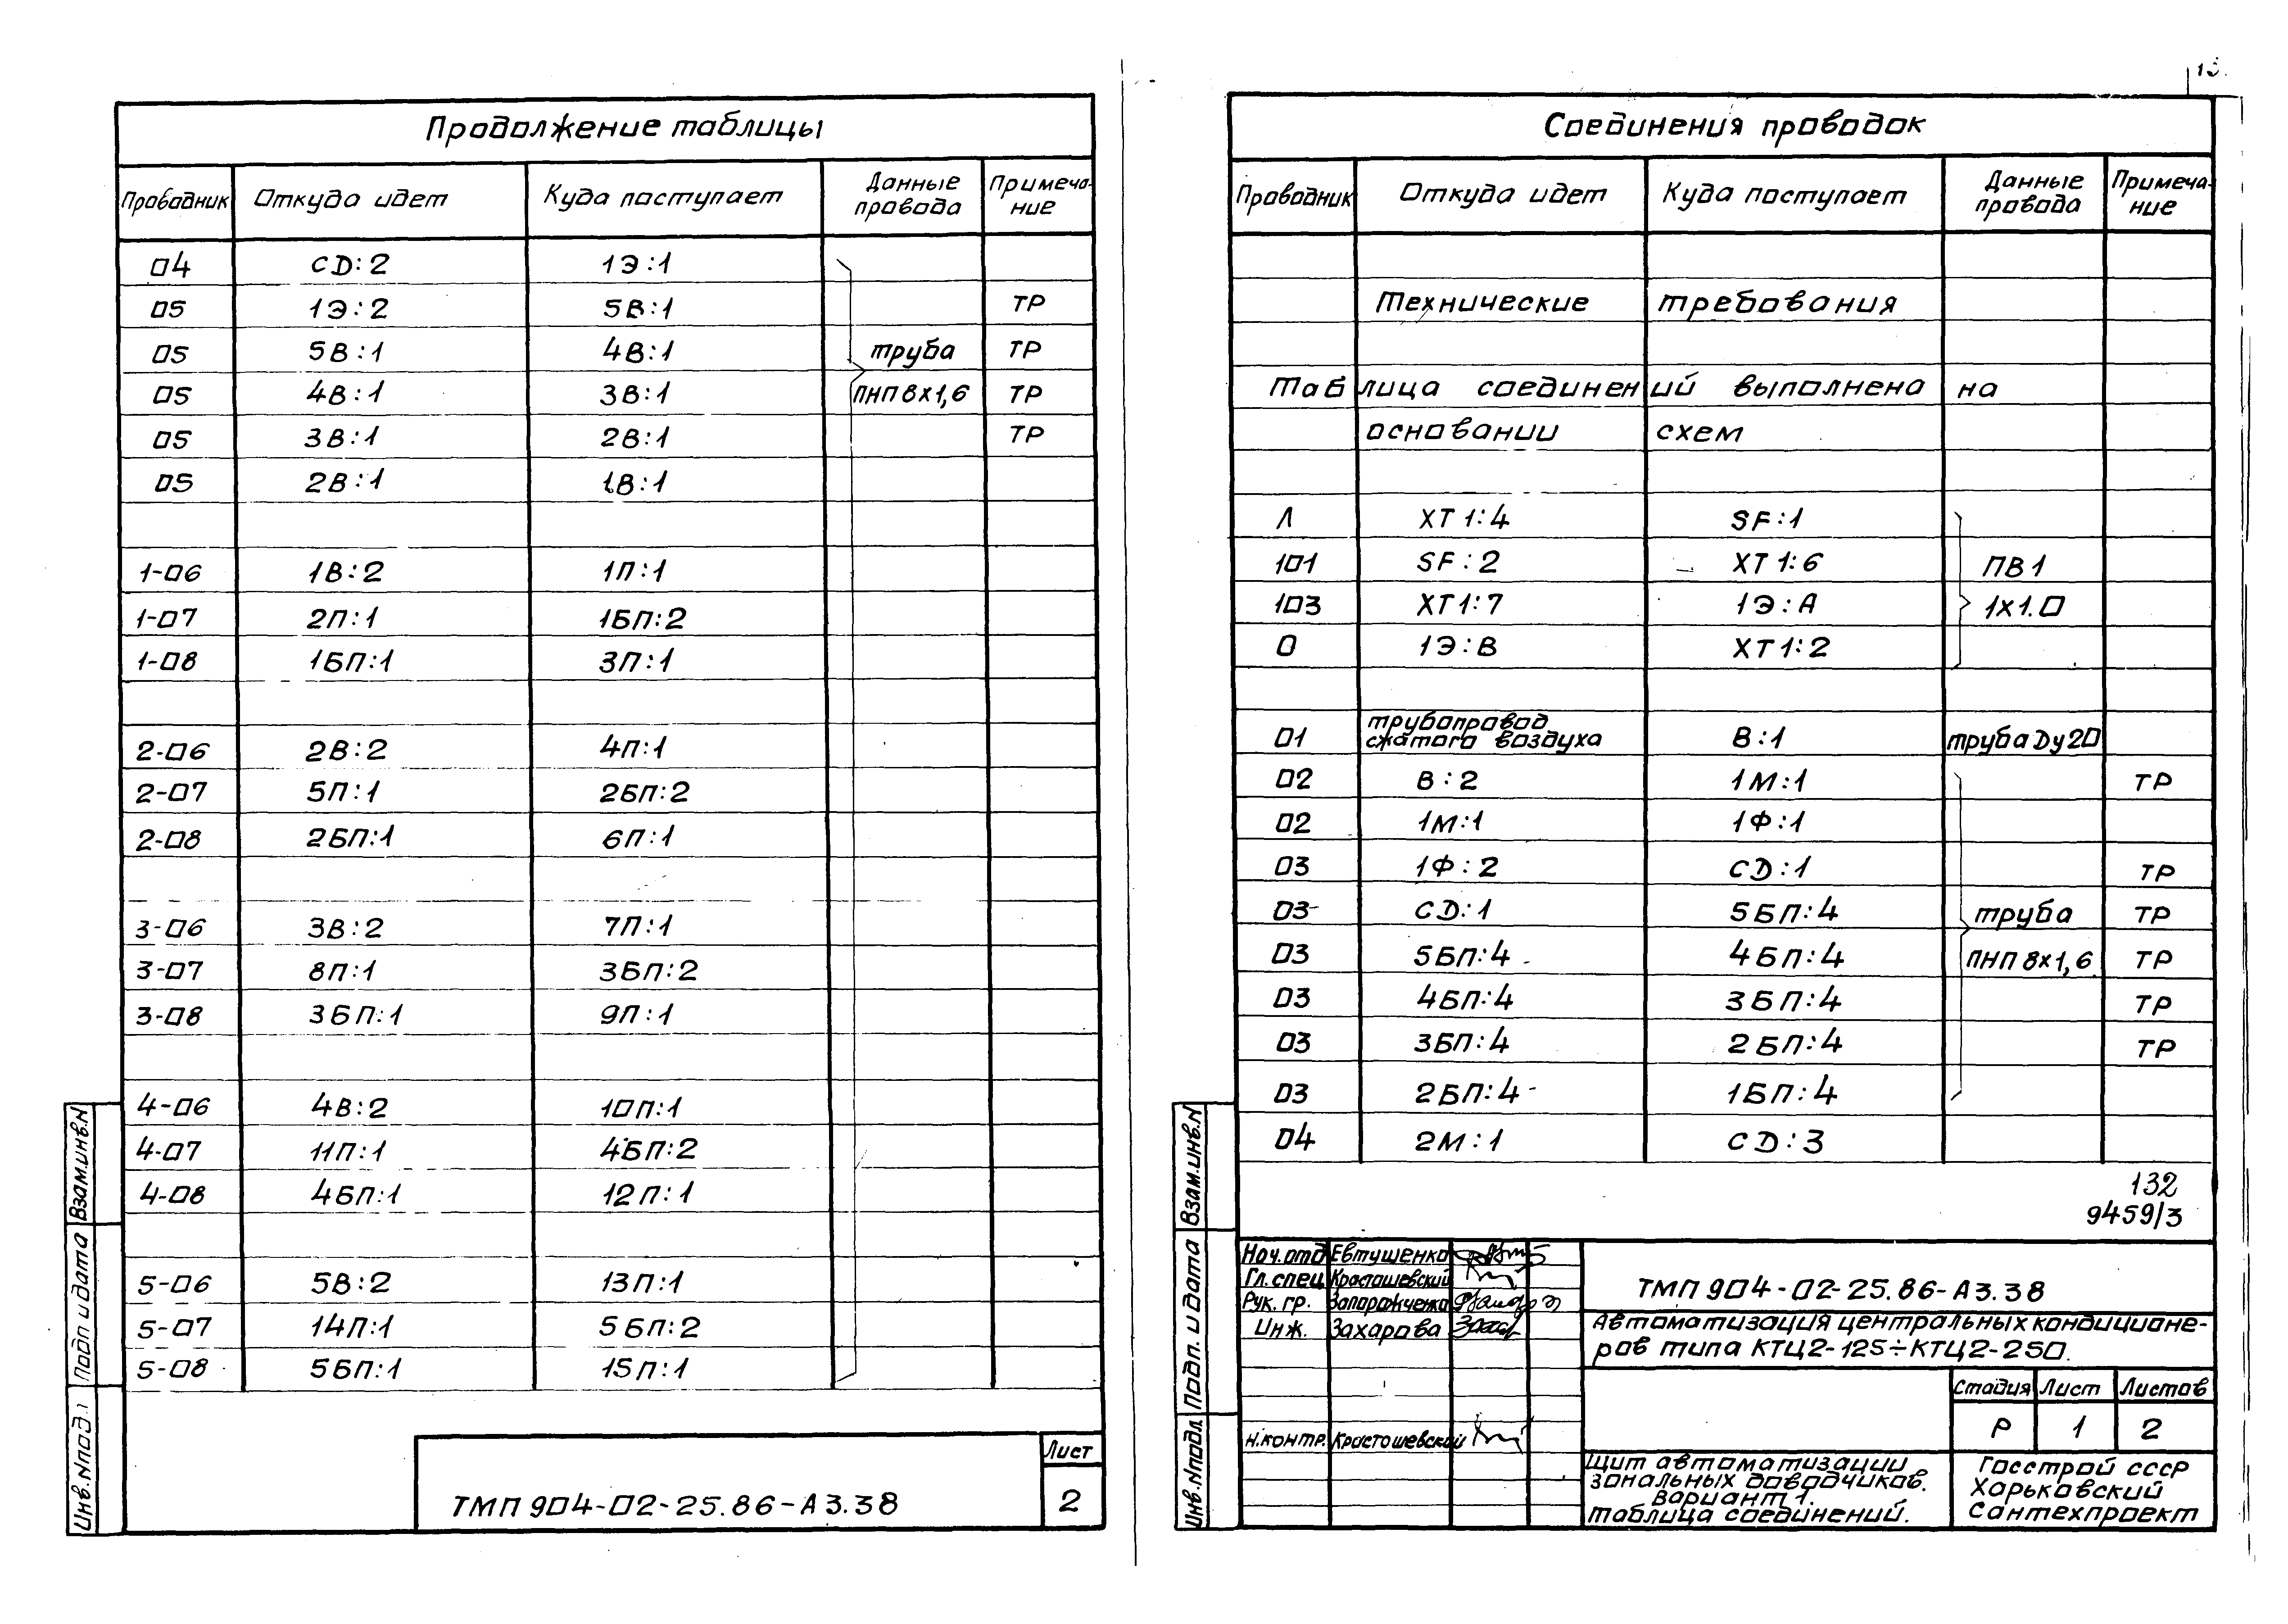 Продолжение таблицы
Проводник Откуда идет Куда поступает Данные провода Примеча-ние
04 СD:2 1Э:1
05 1Э:2 5В:1 ТР
05 5В:1 4В:1 труба ТР
05 4В:1 3В:1 ПНП 8х1,6 ТР
05 3В:1 2В:1 ТР
05 2В:1 1В:1
1-06 1В:2 1П:1
1-07 2П:1 1БП:2
1-08 1БП:1 3П:1
2-06 2В:2 4П:1
2-07 5П:1 2БП:2
2-08 2БП:1 6П:1
3-06 3В:2 7П:1
3-07 8П:1 3БП:2
3-08 3БП:1 9П:1
4-06 4В:2 10П:1
4-07 11П:1 4БП:2
4-08 4БП:1 12П:1
5-06 5В:2 13П:1
5-07 14П:1 5БП:2
5-08 5БП:1 15П:1
Взам.инв.N
Подп и дата
Инв.Nпод.
ТМП 904-02-25.86-А3.38
Лист
2
Соединения проводок
Проводник Откуда идет Куда поступает Данные провода Примеча-ние
Технические требования
Таблица соединений выполнена на
основании схем
Л ХТ1:4 SF:1
101 SF:2 ХТ1:6 ПВ1
103 ХТ1:7 1Э:А 1х1.0
0 1Э:В ХТ1:2
01 трубопровод сжатого воздуха В:1 труба Dу20
02 В:2 1М:1 ТР
02 1М:1 1Ф:1
03 1Ф:2 СD:1 ТР
03 СD:1 5БП:4 труба ТР
03 5БП:4 4БП:4 ПНП 8х1,6 ТР
03 4БП:4 3БП:4 ТР
03 3БП:4 2БП:4 ТР
03 2БП:4 1БП:4
04 2М:1 СD:3
132
9459/3
Взам.инв.N
Подп. и дата
Инв.Nподл.
Нач.отд Евтушенко
Гл.спец Красташевский
Рук. гр. Запорожченко
Инж. Захарова
Н.контр. Крастошевский
ТМП 904-02-25.86-А3.38
Автоматизация центральных кондиционе-
ров типа КТЦ2-125÷КТЦ2-250.
Стадия Лист Листов
Р 1 2
Щит автоматизации
зональных доводчиков.
Вариант 1.
Таблица соединений.
Госстрой СССР
Харьковский
Сантехпроект